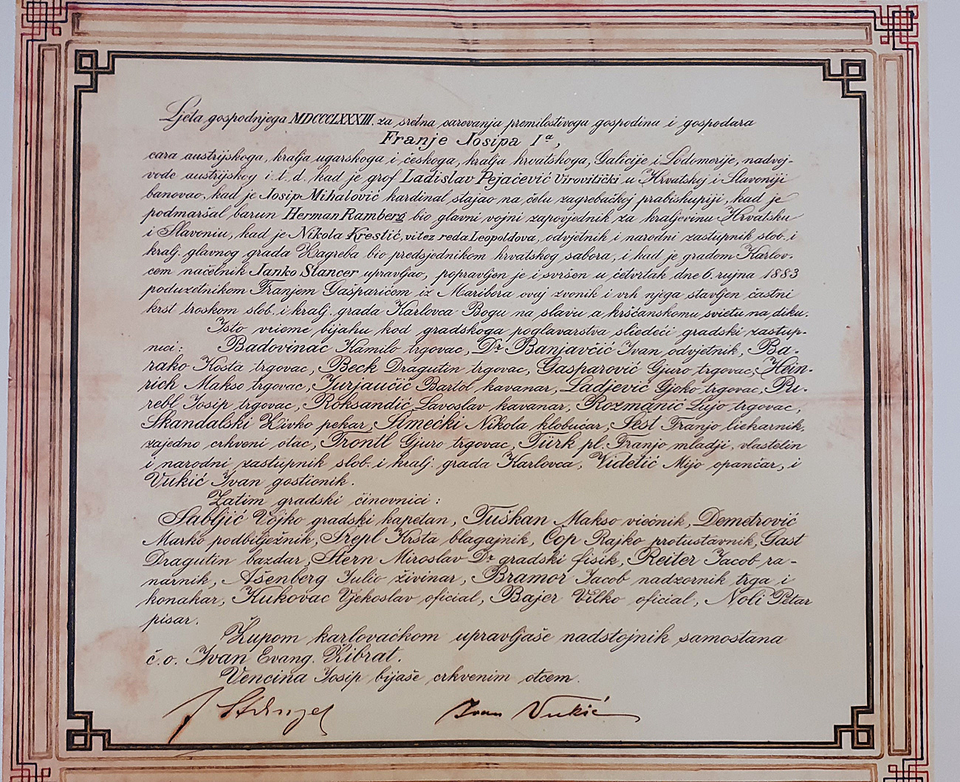 Ljeta gospodnjega MDCCCLXXXIII. za sretna carovanja premilostivoga gospodina i gospodara
Franje Josipa Iª,
cara austrijskoga, kralja ugarskoga i českoga, kralja hrvatskoga, Galicije i Lodomerije, nadvoj-
vode austrijskog i. t. d. kad je grof Ladislav Pejačević Virovitički u Hrvatskoj i Slavoniji
banovao, kad je Josip Mihalović kardinal stajao na čelu zagrebačkoj prabiskupiji, kad je
podmaršal barun Herman Ramberg bio glavni vojni zapovjednik za kraljevinu Hrvatsku
i Slavoniu, kad je Nikola Krestić, vitez reda Leopoldova, odvjetnik i narodni zastupnik slob. i
kralj. glavnog grada Zagreba bio predsjednikom hrvatskog sabora, i kad je gradom Karlov-
cem načelnik Janko Stancer upravljao, popravljen je i svršen u četvrtak dne 6. rujna 1883
poduzetnikom Franjem Gasparićem iz Maribora ovaj zvonik i vrh njega stavljen častni
kerst troskom slob. i kralj. grada Karlovca Bogu na slavu a kršćanskomu svietu na diku.
Isto vrieme bijahu kod gradskoga poglavarstva sliedeći gradski zastup-
nici: Badovinac Kamilo trgovac, Dr Banjavčić Ivan odvjetnik, Ba-
rako Kosta trgovac, Beck Dragutin trgovac, Gasparović Gjuro trgovac, Hein-
rich Makso trgovac, Jurjaučić Bartol kavanar, Ladjević Gjoko trgovac, Pu-
rebl Josip trgovac, Roksandić Lavoslav kavanar, Rozmanić Lujo trgovac,
Skandalski Živko pekar, Simecki Nikola klobučar, Šest Franjo lieharnik,
zajedno crkveni otac, Trontl Gjuro trgovac, Türk pl. Franjo mladji, vlastelin
i narodni zastupnik slob. i kralj. grada Karlovca, Videtić Mijo opančar, i
Vukić Ivan gostionik.
Zatim gradski činovnici:
Sabljić Vojko gradski kapetan, Tuškan Makso viećnik, Demetrović
Marko podbilježnik, Trepl Krsta blagajnik, Cop Rajko protustavnik, Gast
Dragutin bazdar, Stern Miroslav Dr gradski fisik, Reiter Jacob ra-
narnik, Ašenberg Julio živinar, Bramor Jacob nadzornik trga i
konakar, Kukovac Vjekoslav oficial, Bajer Velko oficial, Noli Petar
pisar.
Župom karlovačkom upravljaše nadstojnik samostana
č. o. Ivan Evang. Ribrat.
Vencina Josip bijaše crkvenim otcem.
Ivan Vukić